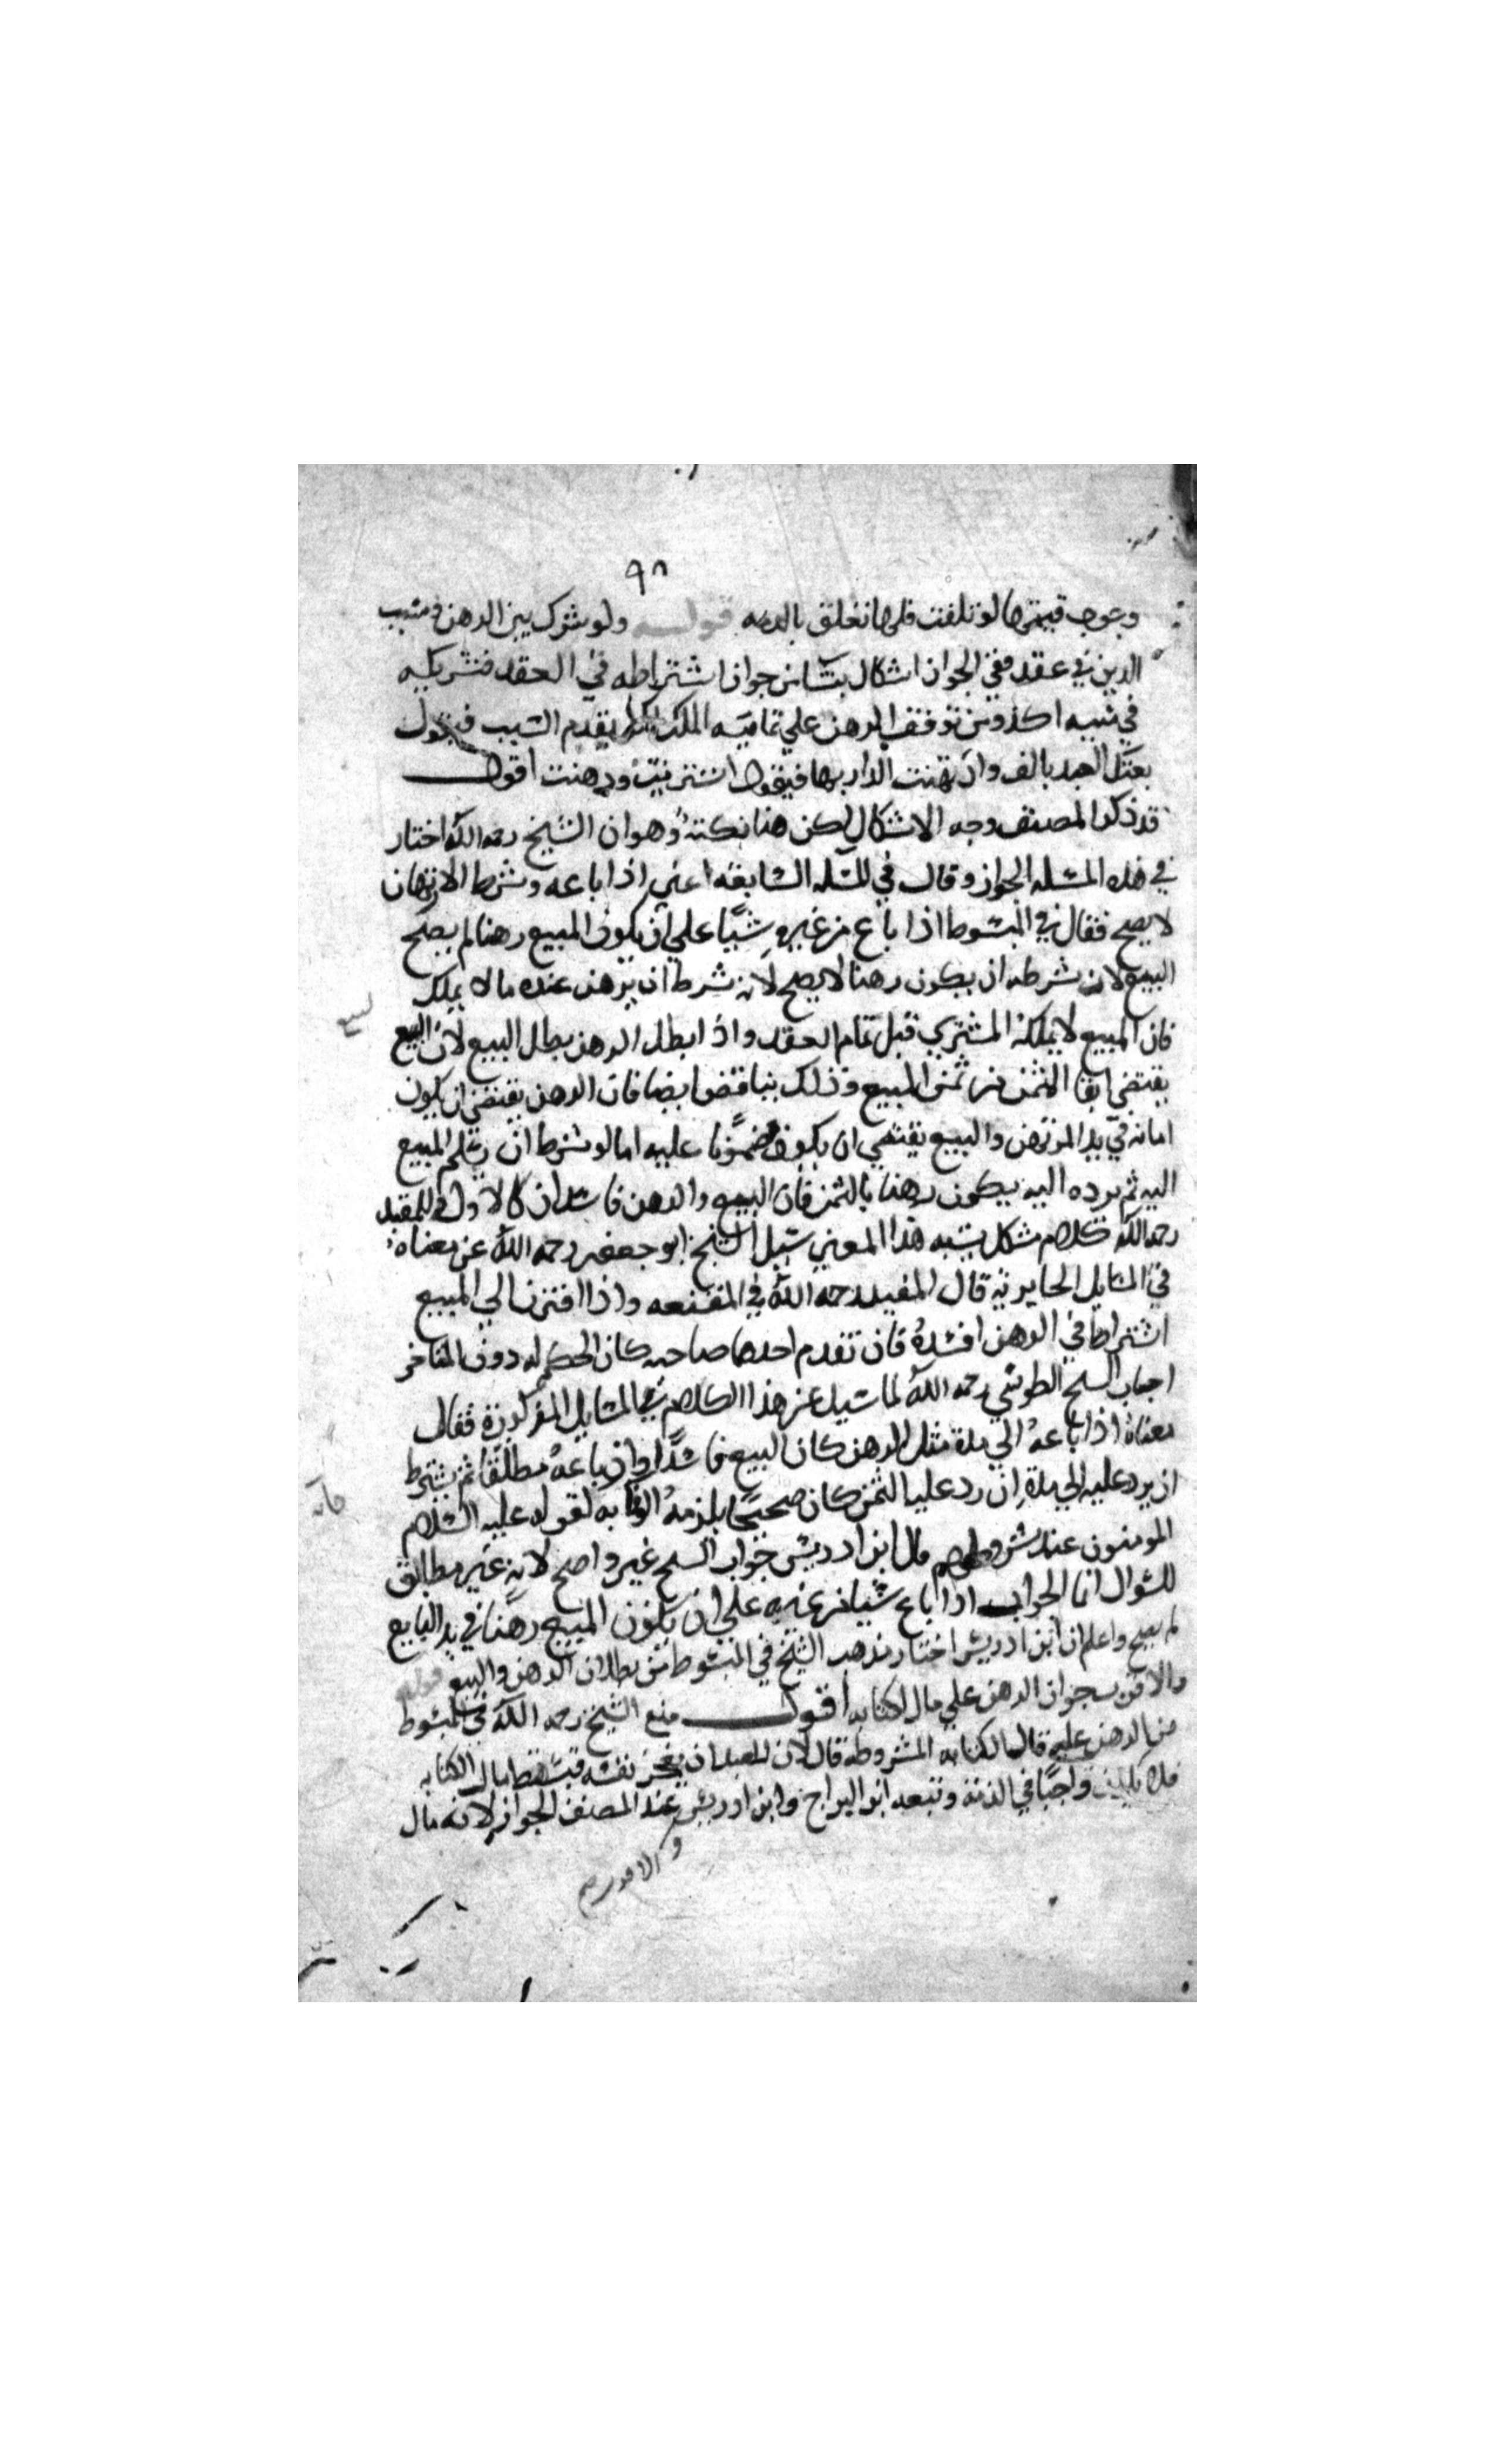 ٩٨
وجوب قيمتها لو تلفت فلها تعلق بالذمه قوله ولو شرك بين الرهن وسبب
الدين في عقد ففي الجواز اشكال ينشا من جواز اشتراطه في العقد فتشريكه
في متنه اكد ومن توقف الرهن علي تماميه الملك لكن يقدم السبب فيقول
بعتك العبد بالف وارتهنت الدار بها فيقول اشتريت ورهنت اقول
قد ذكر المصنف وجه الاشكال لكن هنا نكتة وهو ان الشيخ رحمه الله اختار
في هذه المسله الجواز وقال في المسله السابقه اعني اذا باعه وشرط الارتهان
لا يصح فقال في المبسوط اذا باع من غيره شيًا علي ان يكون المبيع رهنا لم يصح
البيع لان شرطه ان يكون رهنا لا يصح لانه شرط ان يرهن عنده ما لا يملك
فان المبيع لا يملكه المشتري قبل تمام العقد واذا بطل الرهن بطل البيع لان البيع
يقتضي ايفا الثمن من ثمن المبيع وذلك يتناقض ايضا فان الرهن يقتضي ان يكون
امانه في يد المرتهن والبيع يقتضي ان يكون مضمونا عليه اما لو شرط ان يسلم المبيع
اليه ثم يرده اليه يكون رهنا بالثمن فان البيع والرهن فاسدان كالاول وللمفيد
رحمه الله كلام مشكل يشبه هذا المعني سيل الشيخ ابو جعفر رحمه الله عن معناه
في المسايل الحايرية قال المفيد رحمه الله في المقنعه واذا اقترن الي المبيع
اشتراط في الرهن افسده فان تقدم احدهما صاحبه كان الحكم له دون المتاخر
اجاب السيخ الطوسي رحمه الله لما سيل عن هذا الكلام في المسايل المذكورة فقال
معناه اذا باعه الي مدة مثل الرهن كان البيع فاسدًا وان باعه مطلقا ثم يشترط
ان يرد عليه الي مدة ان رد عليه الثمن كان صحيحًا يلزمه الوفا به لقوله عليه السلام
المومنون عند شروطهم قال ابن ادريس جواب السيخ غير واضح لانه غير مطابق
للسوال انما الجواب اذا باع شيا من غيره علي ان يكون المبيع رهنًا في يد البايع
لم يصح واعلم ان ابن ادريس اختار مذهب الشيخ في المبسوط من بطلان الرهن والبيع قوله
والاقرب جواز الرهن علي مال الكتابه اقول منع الشيخ رحمه الله في المبسوط
من الرهن عليه قال الكتابه المشروطه قال لان للعبد ان يعجز نفسه فيسقط مال الكتابه
فلا يكون واجبًا في الذمة وتبعه ابن البراج وابن ادريس عند المصنف الجواز لانه مال
والاقرب صح